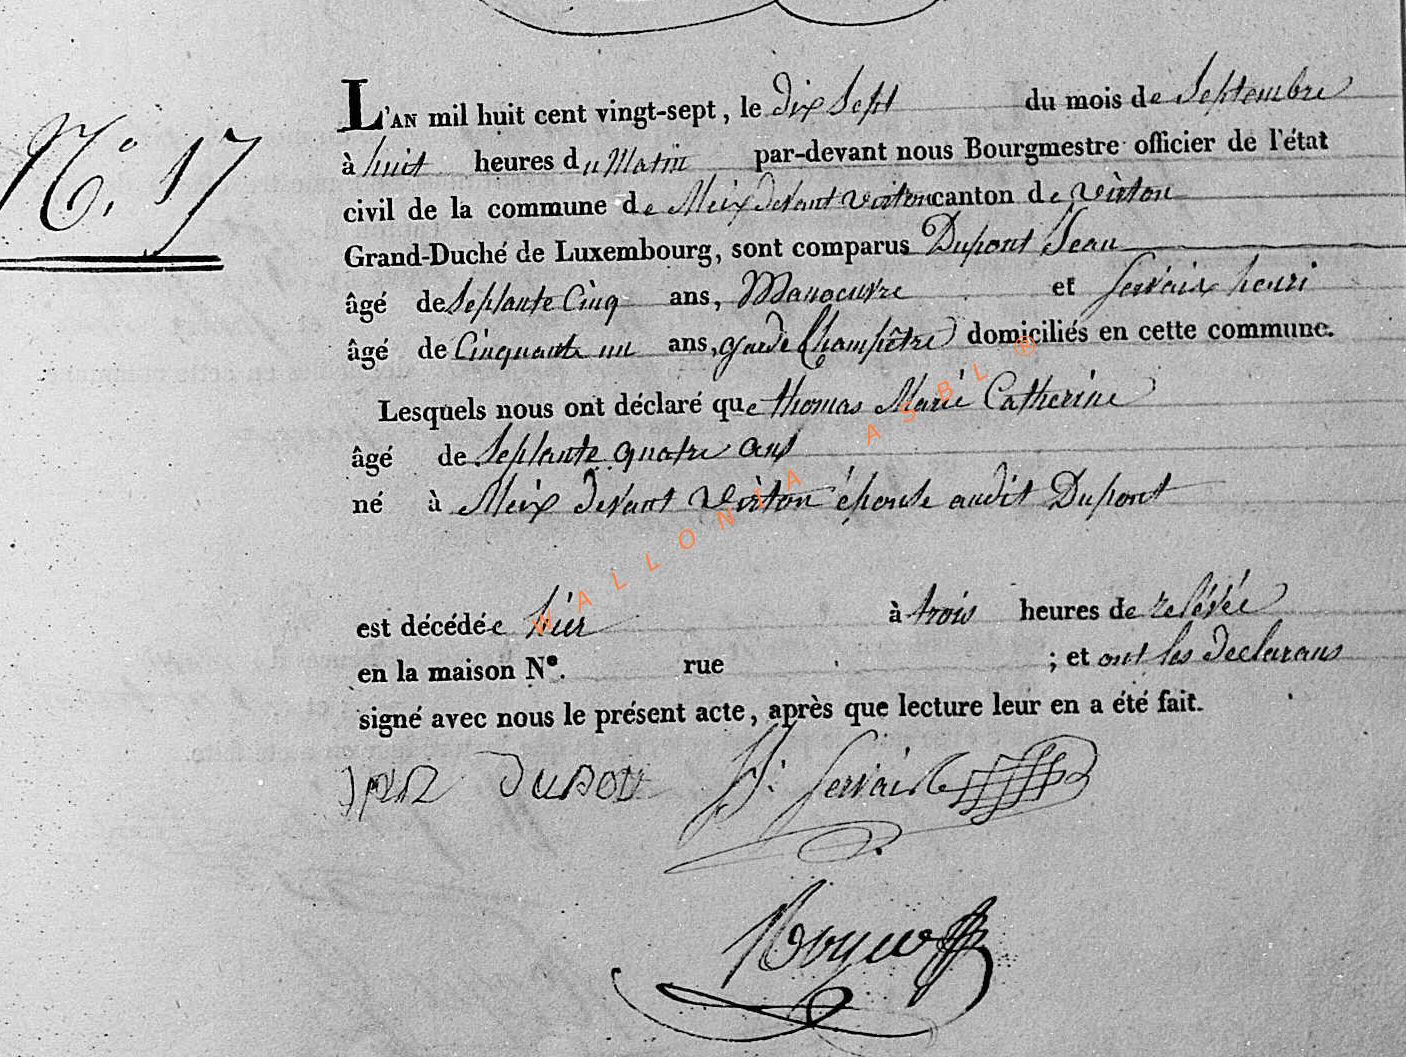 N.o 17
L'AN mil huit cent vingt-sept, le dix Sept du mois de Septembre
à huit heures du Matin par-devant nous Bourgmestre officier de l'état
civil de la commune de Meix devant virton canton de virton
Grand-Duché de Luxembourg, sont comparus Dupont Jean
âgé de Septante Cinq ans, Manoeuvre et Servais henri
âgé de Cinquante un ans, garde Champêtre domiciliés en cette commune.
Lesquels nous ont déclaré que thomas Marie Catherine
âgé de Septante quatre ans
né à Meix devant Virton épouse audit Dupont
est décédée hier à trois heures de relévée
en la maison N°. rue ; et ont les declarans
signé avec nous le présent acte, après que lecture leur en a été fait.
H: Servais
WALLONIA ASBL ®